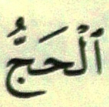 ٱلْحَجُّ